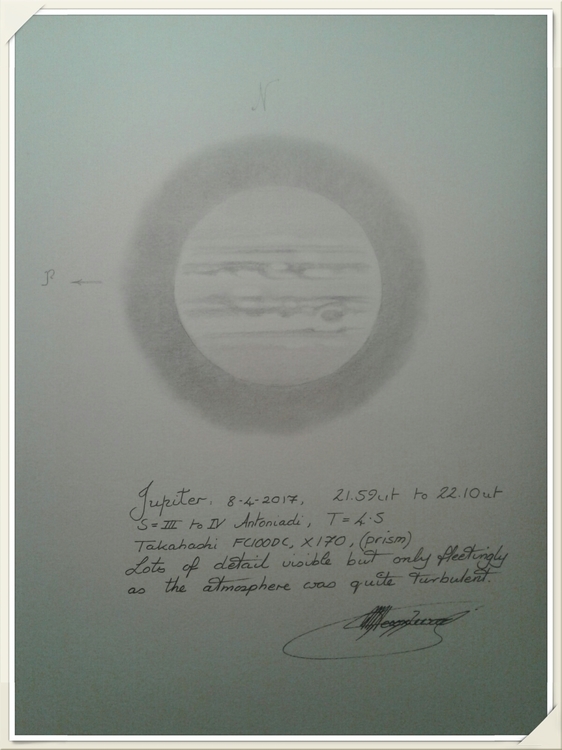 N
P
Jupiter, 8-4-2017, 21.59ut to 22.10ut
S=III to IV Antoniadi, T=4.5
Takahashi FC100DC, X170, (prism)
Lots of detail visible but only fleetingly
as the atmosphere was quite turbulent.